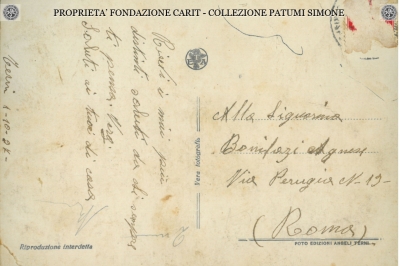 PROPRIETA' FONDAZIONE CARIT - COLLEZIONE PATUMI SIMONE
Terni 1-10-
Ricevi i miei più
distinti saluti da chi sempre
ti pensa
Saluti ai tuoi di casa
Vera fotografia
Alla Signorina
Bonifazi Agnese
Via Perugia N-13-
(Roma)
Riproduzione interdetta
FOTO EDIZIONI ANGELI TERNI